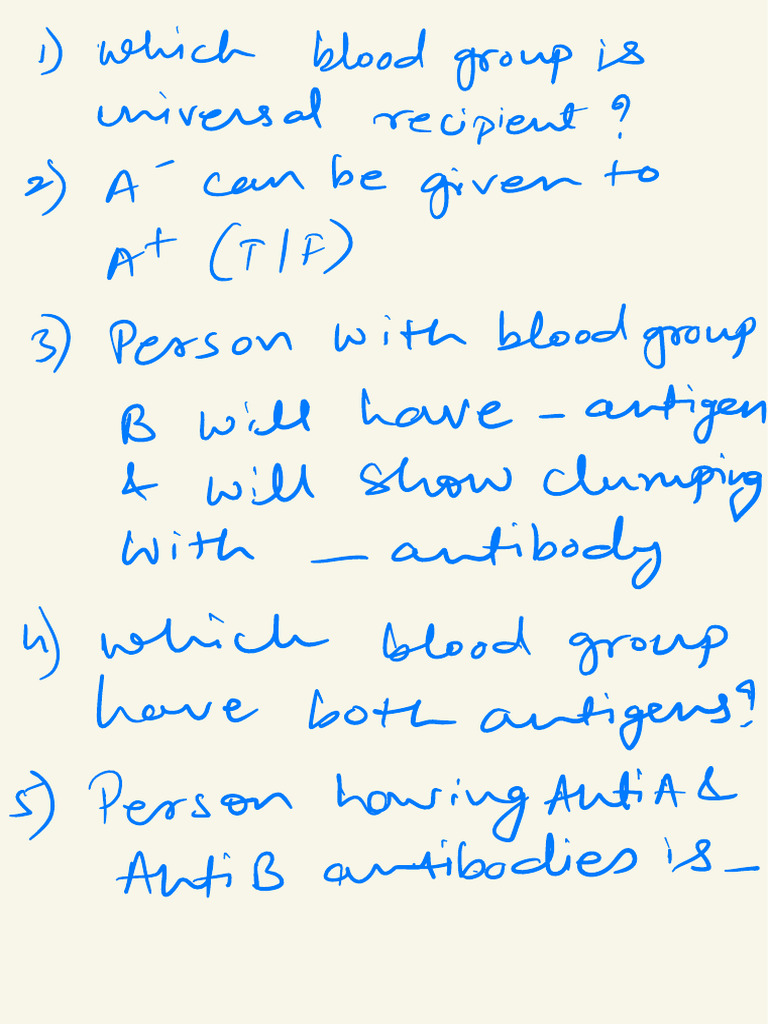 1) which blood group is
universal recipient?
2) A⁻ can be given to
A⁺ (T/F)
3) Person with blood group
B will have _ antigen
& will show clumping
with _ antibody
4) which blood group
have both antigens?
5) Person having Anti A &
Anti B antibodies is _